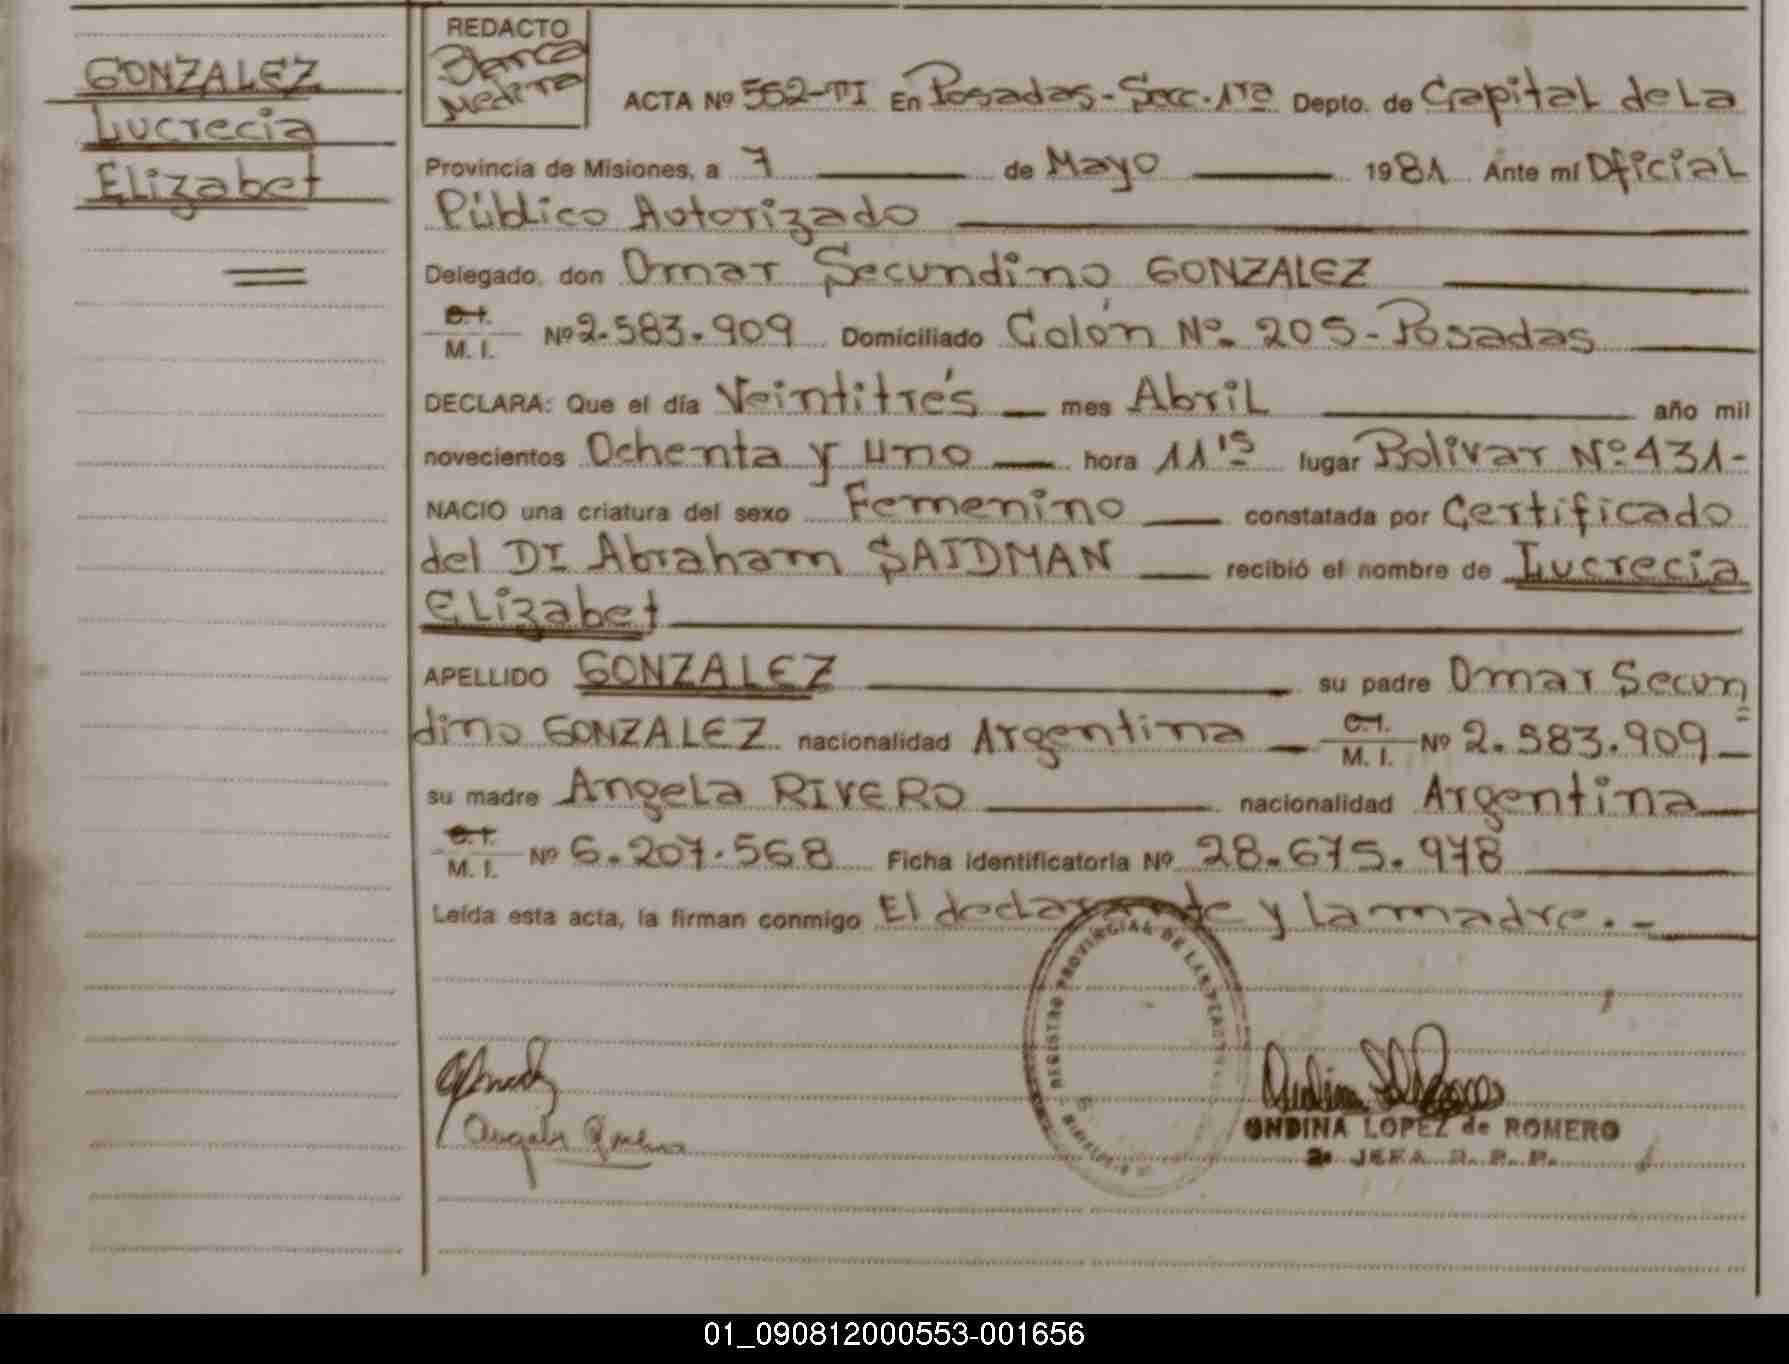 GONZALEZ
Lucrecia
Elizabet
REDACTO
Blanca
Medina
ACTA Nº 552-TI En Posadas-Secc.1ra Depto. de Capital de La
Provincia de Misiones, a 7 de Mayo 1981 Ante mí Oficial
Público Autorizado
Delegado, don Omar Secundino GONZALEZ
C.I.
M. I. Nº 2.583.909 Domiciliado Colón Nº. 205-Posadas
DECLARA: Que el día Veintitrés mes Abril año mil
novecientos Ochenta y uno hora 11'15 lugar Bolivar Nº 431-
NACIO una criatura del sexo Femenino constatada por Certificado
del Dr Abraham SAIDMAN recibió el nombre de Lucrecia
Elizabet
APELLIDO GONZALEZ su padre Omar Secun
dino GONZALEZ nacionalidad Argentina C.I. M. I. Nº 2.583.909
su madre Angela RIVERO nacionalidad Argentina
C.I.
M. I. Nº 6.207.568 Ficha identificatoria Nº 28.675.978
Leída esta acta, la firman conmigo El declarante y la madre.-
REGISTRO PROVINCIAL DE LAS PERSONAS
Angela Rivero
ONDINA LOPEZ de ROMERO
2ª JEFA R. P. P.
01_090812000553-001656